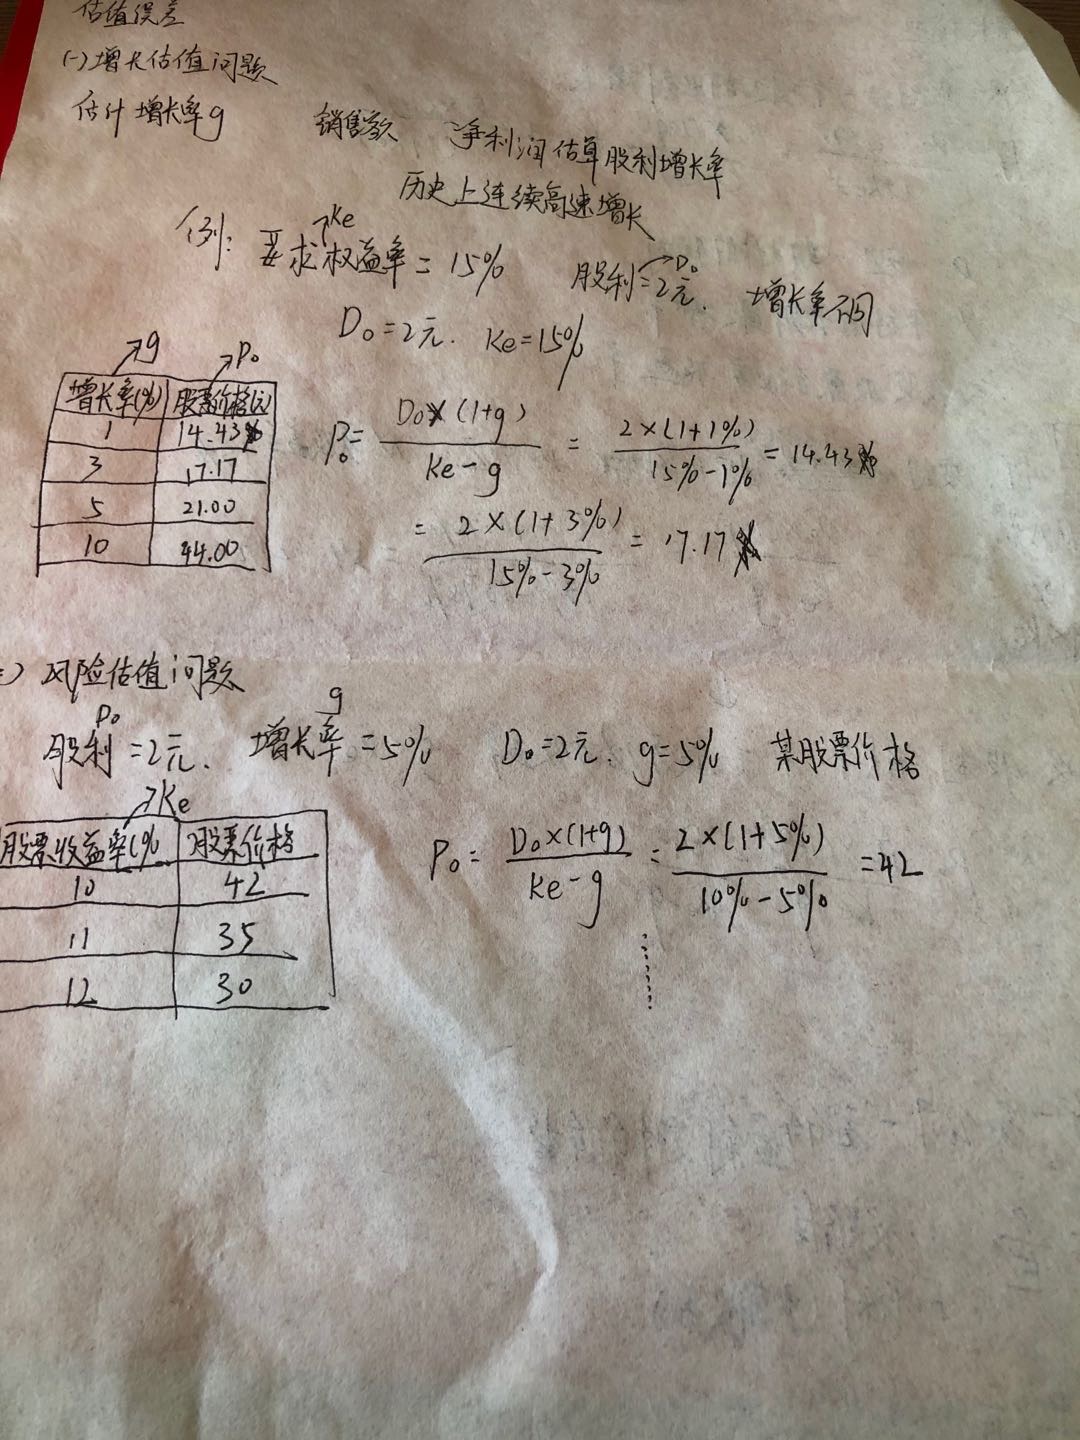 估值误差
(一)增长估值问题
估计增长率g 销售数 净利润估算股利增长率
历史上连续高速增长
Ke
例: 要求权益率=15% 股利=2元. D₀ 增长率不同
D₀=2元. Ke=15%
g P₀
增长率(%) 股票价格(元)
1 14.43
3 17.17
5 21.00
10 44.00
P₀= D₀×(1+g) / Ke-g = 2×(1+1%) / 15%-1% = 14.43
= 2×(1+3%) / 15%-3% = 17.17
) 风险估值问题
D₀ g
股利=2元. 增长率=5% D₀=2元. g=5% 某股票价格
Ke
股票收益率(% 股票价格
10 42
11 35
12 30
P₀= D₀×(1+g) / Ke-g = 2×(1+5%) / 10%-5% =42